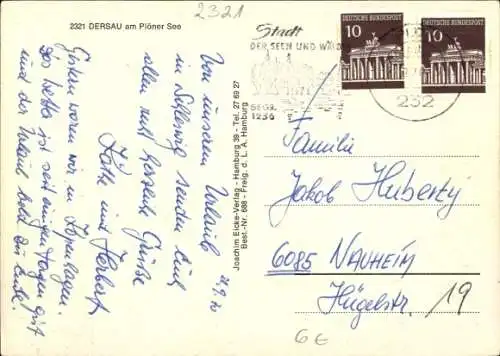 2321
2321 DERSAU am Plöner See
Stadt
DER SEEN UND WÄLDER
SEGR.
1236
10
DEUTSCHE BUNDESPOST
10
DEUTSCHE BUNDESPOST
232
Von unserem Urlaub
in Schleswig senden Euch
allen recht herzliche Grüße
Käthe und Herbert
Gestern waren wir in Kopenhagen.
Das Wetter ist seit einigen Tagen gut
und der Urlaub bald zu Ende!
Joachim Eicke-Verlag - Hamburg 39 - Tel. 27 69 27
Best.-Nr. 688 - Freig. d. L. A. Hamburg
Familie
Jakob Huberty
6085 NAUHEIM
Hügelstr. 19
6€